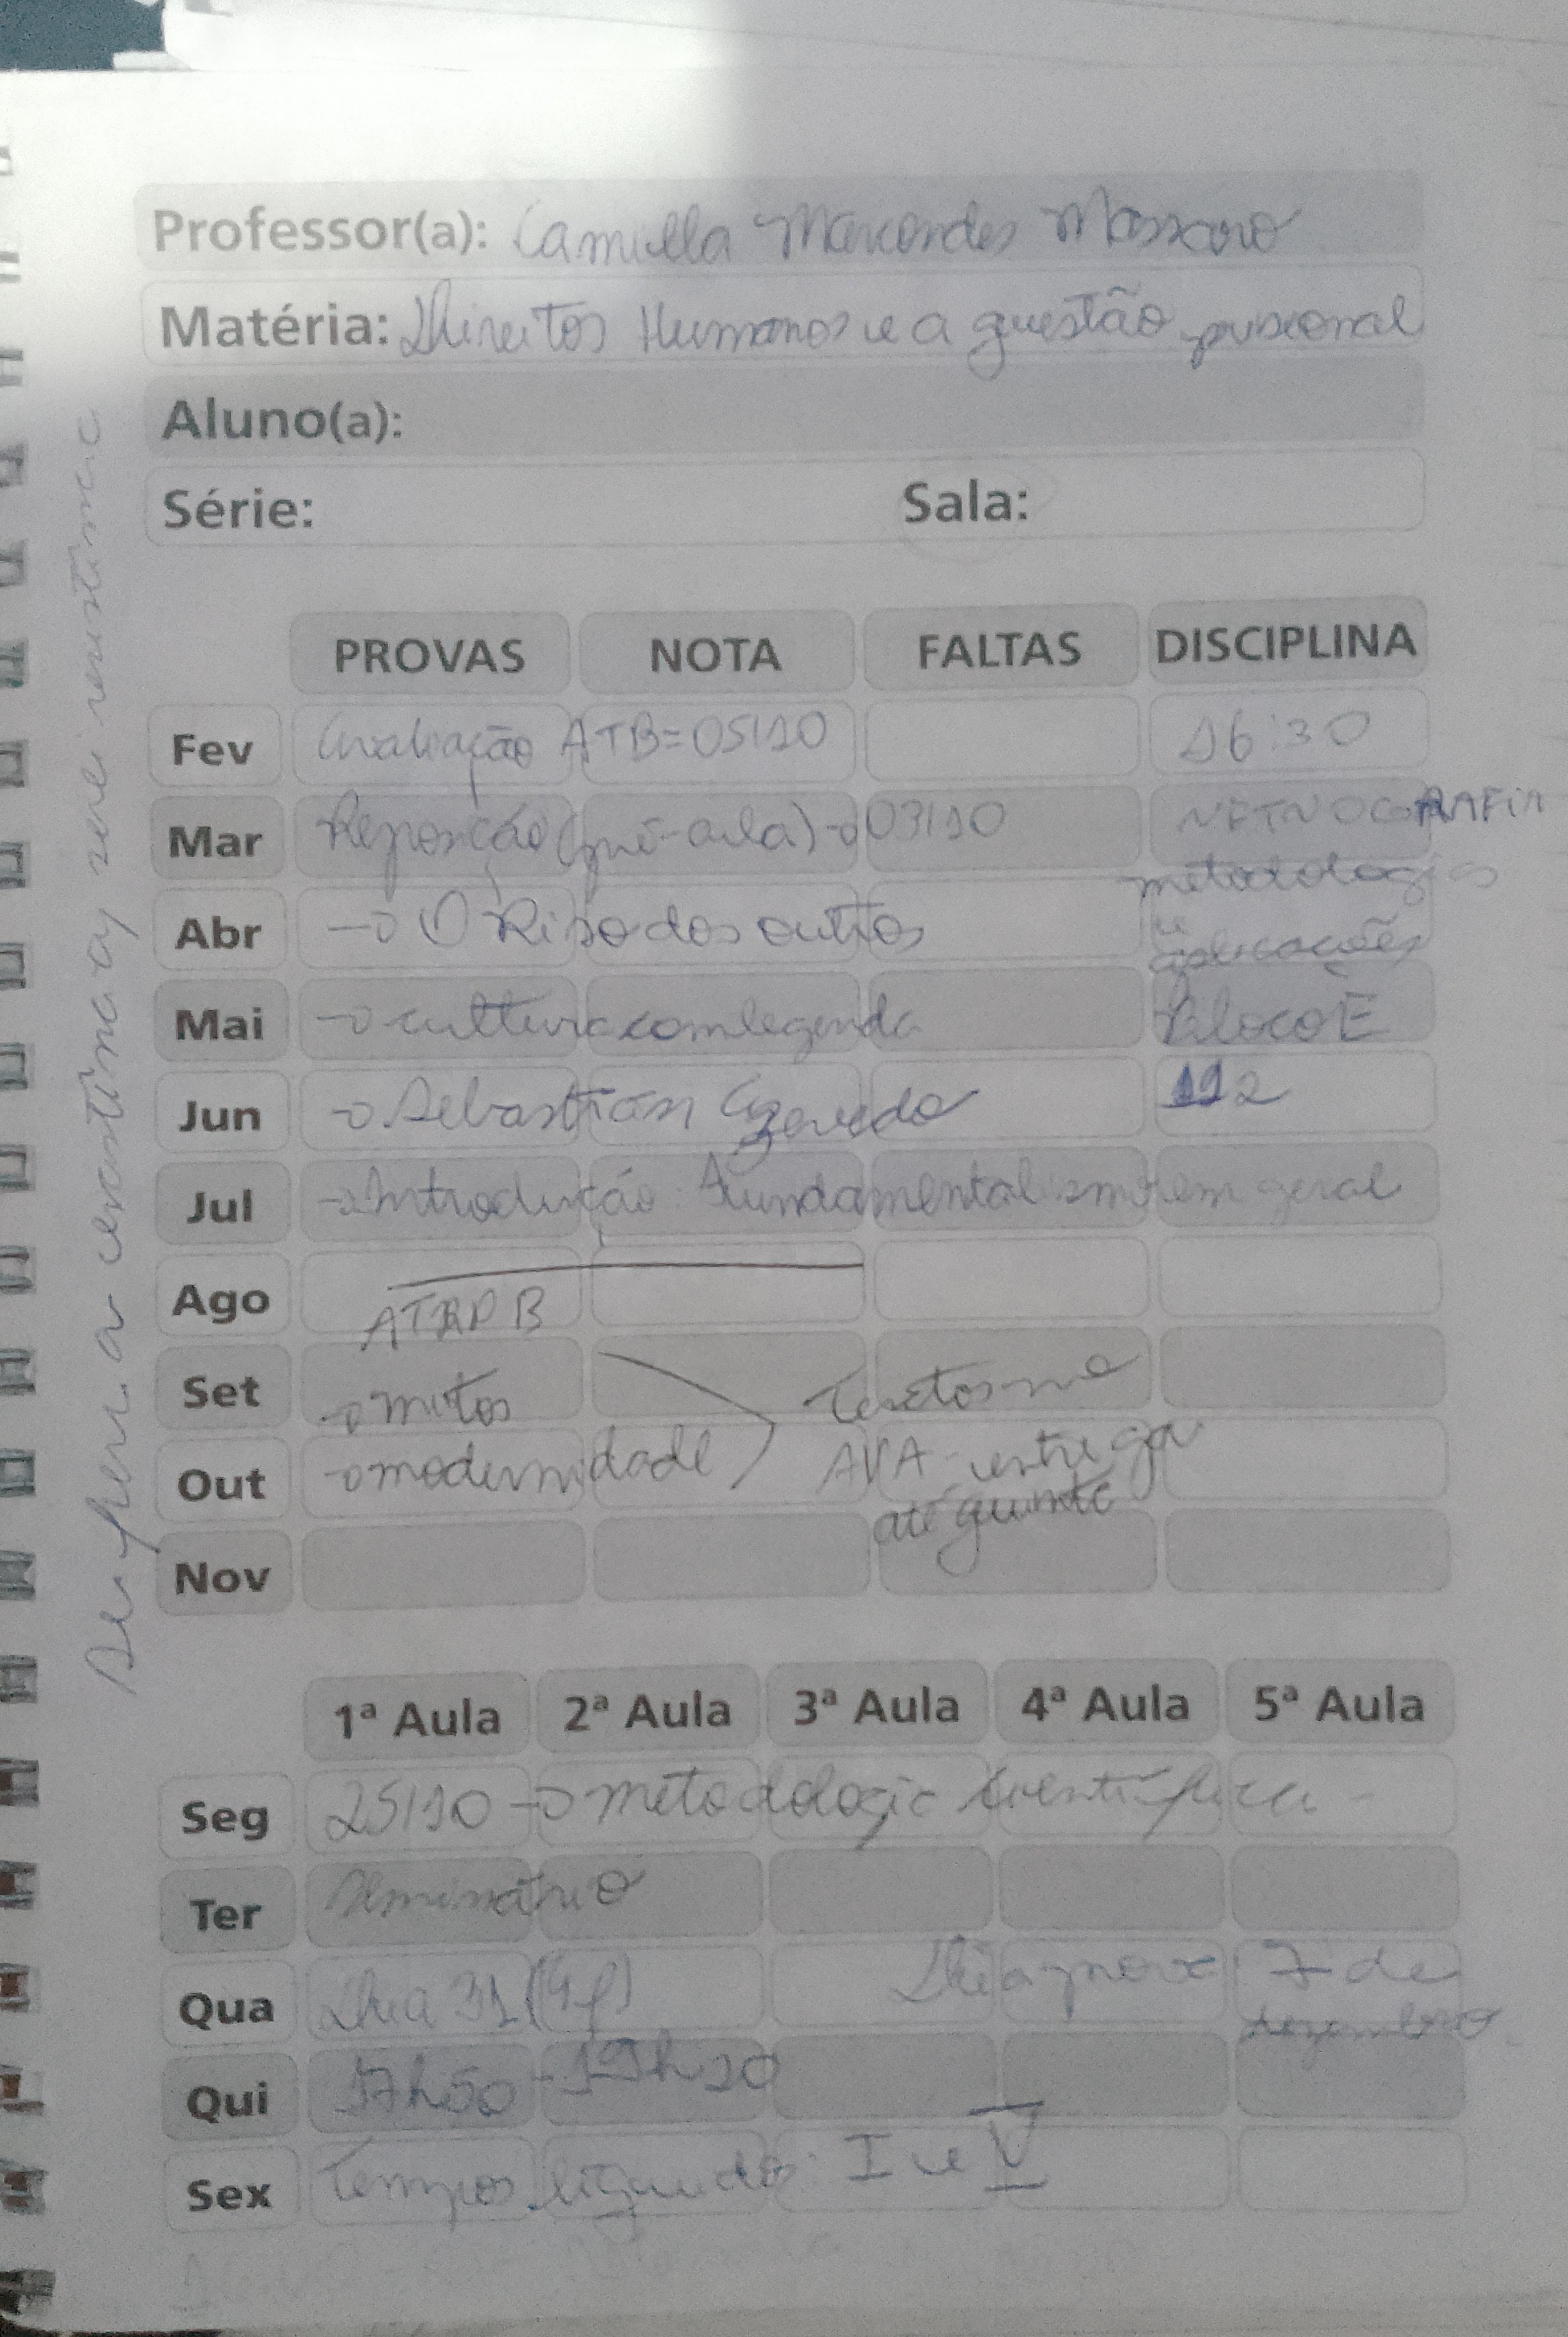 Professor(a): Camilla Marcondes Massaro
Matéria: Direitos Humanos e a questão prisional
Aluno(a):
Série: Sala:
PROVAS NOTA FALTAS DISCIPLINA
Fev Avaliação ATB=05/10 16:30
Mar Reposição (pré-aula) → 03/10 NETNOGRAFIA
metodologia
Abr → O Riso dos outros e
aplicações
Mai → cultura com legenda Bloco E
Jun → Sebastian Azevedo 112
Jul → Introdução: fundamentalismo em geral
Ago
ATRP B
Set → mitos Textos no
Out → modernidade AVA - entrega
até quinta
Nov
1ª Aula 2ª Aula 3ª Aula 4ª Aula 5ª Aula
Seg 25/10 → metodologia científica -
Ter Seminário
Qua Dia 31 (4f) Dia prova: 7 de
dezembro
Qui 17h50 - 19h20
Sex Tempos líquidos: I e V